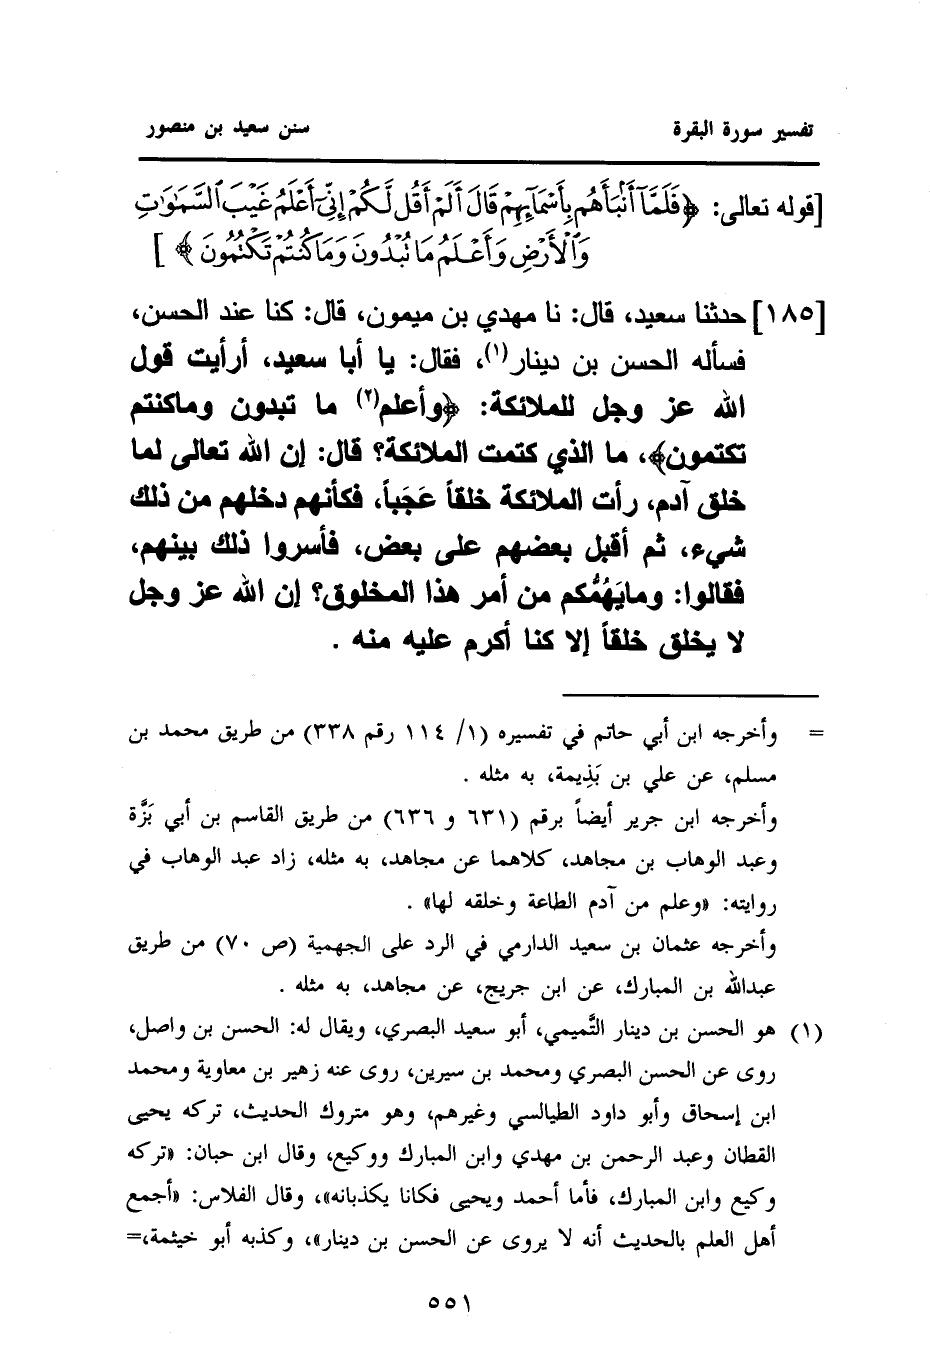 تفسير سورة البقرة سنن سعيد بن منصور
[قوله تعالى: ﴿فَلَمَّآ أَنۢبَأَهُم بِأَسۡمَآئِهِمۡ قَالَ أَلَمۡ أَقُل لَّكُمۡ إِنِّيٓ أَعۡلَمُ غَيۡبَ ٱلسَّمَٰوَٰتِ
وَٱلۡأَرۡضِ وَأَعۡلَمُ مَا تُبۡدُونَ وَمَا كُنتُمۡ تَكۡتُمُونَ﴾]
[١٨٥] حدثنا سعيد، قال: نا مهدي بن ميمون، قال: كنا عند الحسن،
فسأله الحسن بن دينار(١)، فقال: يا أبا سعيد، أرأيت قول
الله عز وجل للملائكة: ﴿وأعلم(٢) ما تبدون وماكنتم
تكتمون﴾، ما الذي كتمت الملائكة؟ قال: إن الله تعالى لما
خلق آدم، رأت الملائكة خلقاً عَجَباً، فكأنهم دخلهم من ذلك
شيء، ثم أقبل بعضهم على بعض، فأسروا ذلك بينهم،
فقالوا: ومايَهُمُّكم من أمر هذا المخلوق؟ إن الله عز وجل
لا يخلق خلقاً إلا كنا أكرم عليه منه .
= وأخرجه ابن أبي حاتم في تفسيره (١/ ١١٤ رقم ٣٣٨) من طريق محمد بن
مسلم، عن علي بن بَذِيمة، به مثله .
وأخرجه ابن جرير أيضاً برقم (٦٣١ و ٦٣٦) من طريق القاسم بن أبي بَزَّة
وعبد الوهاب بن مجاهد، كلاهما عن مجاهد، به مثله، زاد عبد الوهاب في
روايته: «وعلم من آدم الطاعة وخلقه لها» .
وأخرجه عثمان بن سعيد الدارمي في الرد على الجهمية (ص ٧٠) من طريق
عبدالله بن المبارك، عن ابن جريج، عن مجاهد، به مثله .
(١) هو الحسن بن دينار التَّميمي، أبو سعيد البصري، ويقال له: الحسن بن واصل،
روى عن الحسن البصري ومحمد بن سيرين، روى عنه زهير بن معاوية ومحمد
ابن إسحاق وأبو داود الطيالسي وغيرهم، وهو متروك الحديث، تركه يحيى
القطان وعبد الرحمن بن مهدي وابن المبارك ووكيع، وقال ابن حبان: «تركه
وكيع وابن المبارك، فأما أحمد ويحيى فكانا يكذبانه»، وقال الفلاس: «أجمع
أهل العلم بالحديث أنه لا يروى عن الحسن بن دينار»، وكذبه أبو خيثمة،=
٥٥١